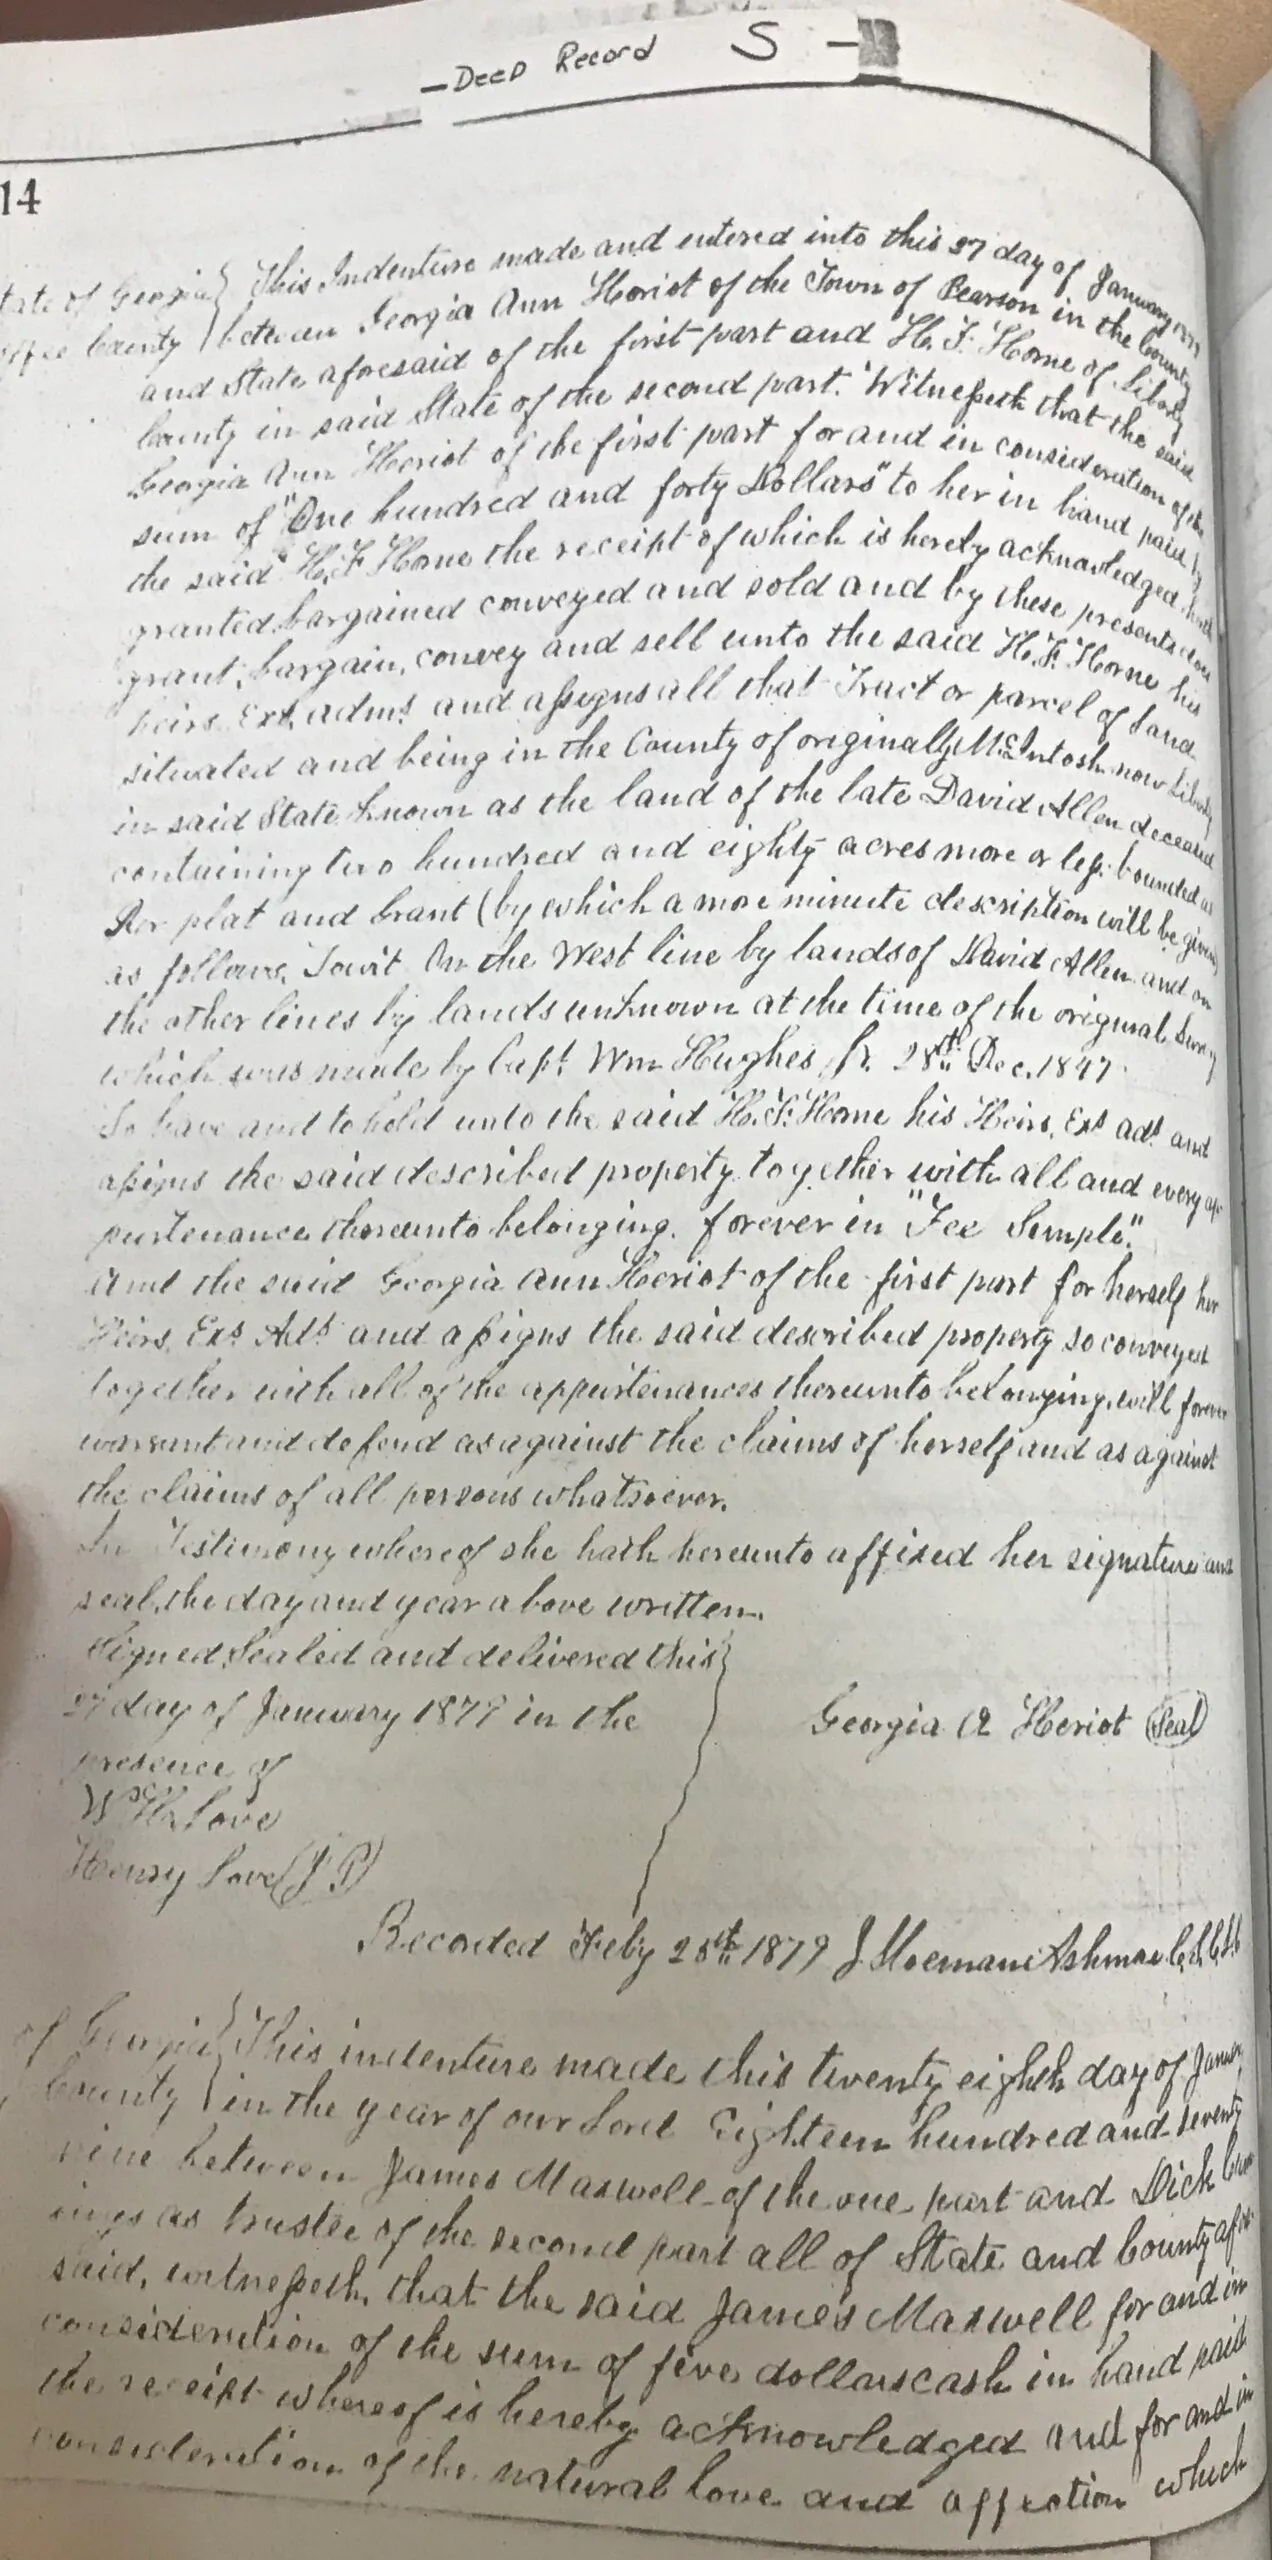 — Deed Record S —
14
tate of Georgia } This Indenture made and entered into this 27 day of January
County } between Georgia Ann Heriot of the Town of Pearson in the County
and State aforesaid of the first part and H. F. Horne of Liberty
County in said State of the second part. Witnesseth that the said
Georgia Ann Heriot of the first part for and in consideration of the
sum of "One hundred and forty Dollars" to her in hand paid by
the said H. F. Horne the receipt of which is hereby acknowledged hath
granted, bargained conveyed and sold and by these presents does
grant, bargain, convey and sell unto the said H. F. Horne his
heirs, Exs, adms and assigns all that Tract or parcel of Land
situated and being in the County of originally McIntosh now Liberty
in said State known as the land of the late David Allen deceased
containing two hundred and eighty acres more or less. bounded as
Per plat and Grant (by which a more minute description will be given)
as follows, Towit On the West line by lands of David Allen and on
the other lines by lands unknown at the time of the original Survey
which was made by Capt. Wm Hughes Jr. 28th Dec. 1847.
To have and to hold unto the said H. F. Horne his Heirs, Exs ads and
assigns the said described property together with all and every ap
purtenance thereunto belonging. forever in "Fee Simple".
And the said Georgia Ann Heriot of the first part for herself her
Heirs, Exs Ads and assigns the said described property so conveyed
together with all of the appurtenances thereunto belonging, will forever
warrant and defend as against the claims of herself and as against
the claims of all persons whatsoever.
In Testimony whereof she hath hereunto affixed her signature and
seal, the day and year above written.
Signed Sealed and delivered this }
27 day of January 1879 in the
Georgia A Heriot (Seal)
presence of
Love
Henry Love (J P)
Recorded Feby 28th 1879 J
of Georgia } This indenture made this twenty eighth day of January
County } in the year of our Lord Eighteen hundred and seventy
nine between James Maxwell of the one part and Dick
ings as trustee of the second part all of State and County afore
said, witnesseth, that the said James Maxwell for and in
consideration of the sum of five dollars cash in hand paid
the receipt whereof is hereby acknowledged and for and in
consideration of the natural love and affection which